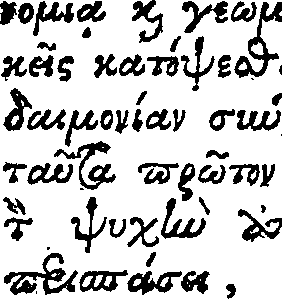 νομίᾳ κ̀ γεωμ
κεῖς κατόψεσθ
δαιμονίαν σιω
ταῦτα πρῶτον
τ̀ ψυχὼ ἀν
περισπάσει,